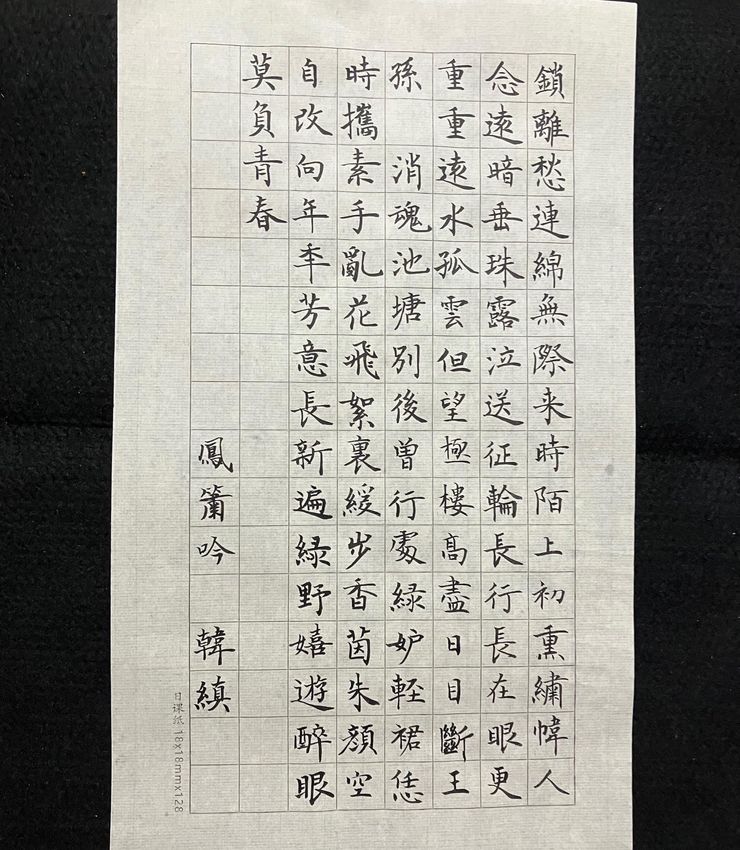 鎖離愁連綿無際来時陌上初熏繡幃人
念遠暗垂珠露泣送征輪長行長在眼更
重重遠水孤雲但望極樓高盡日目斷王
孫 消魂池塘別後曾行處綠妒軽裙恁
時攜素手亂花飛絮裏緩步香茵朱顏空
自改向年秊芳意長新遍綠野嬉遊醉眼
莫負青春
鳳簫吟 韓縝
日课纸 18x18mmx128